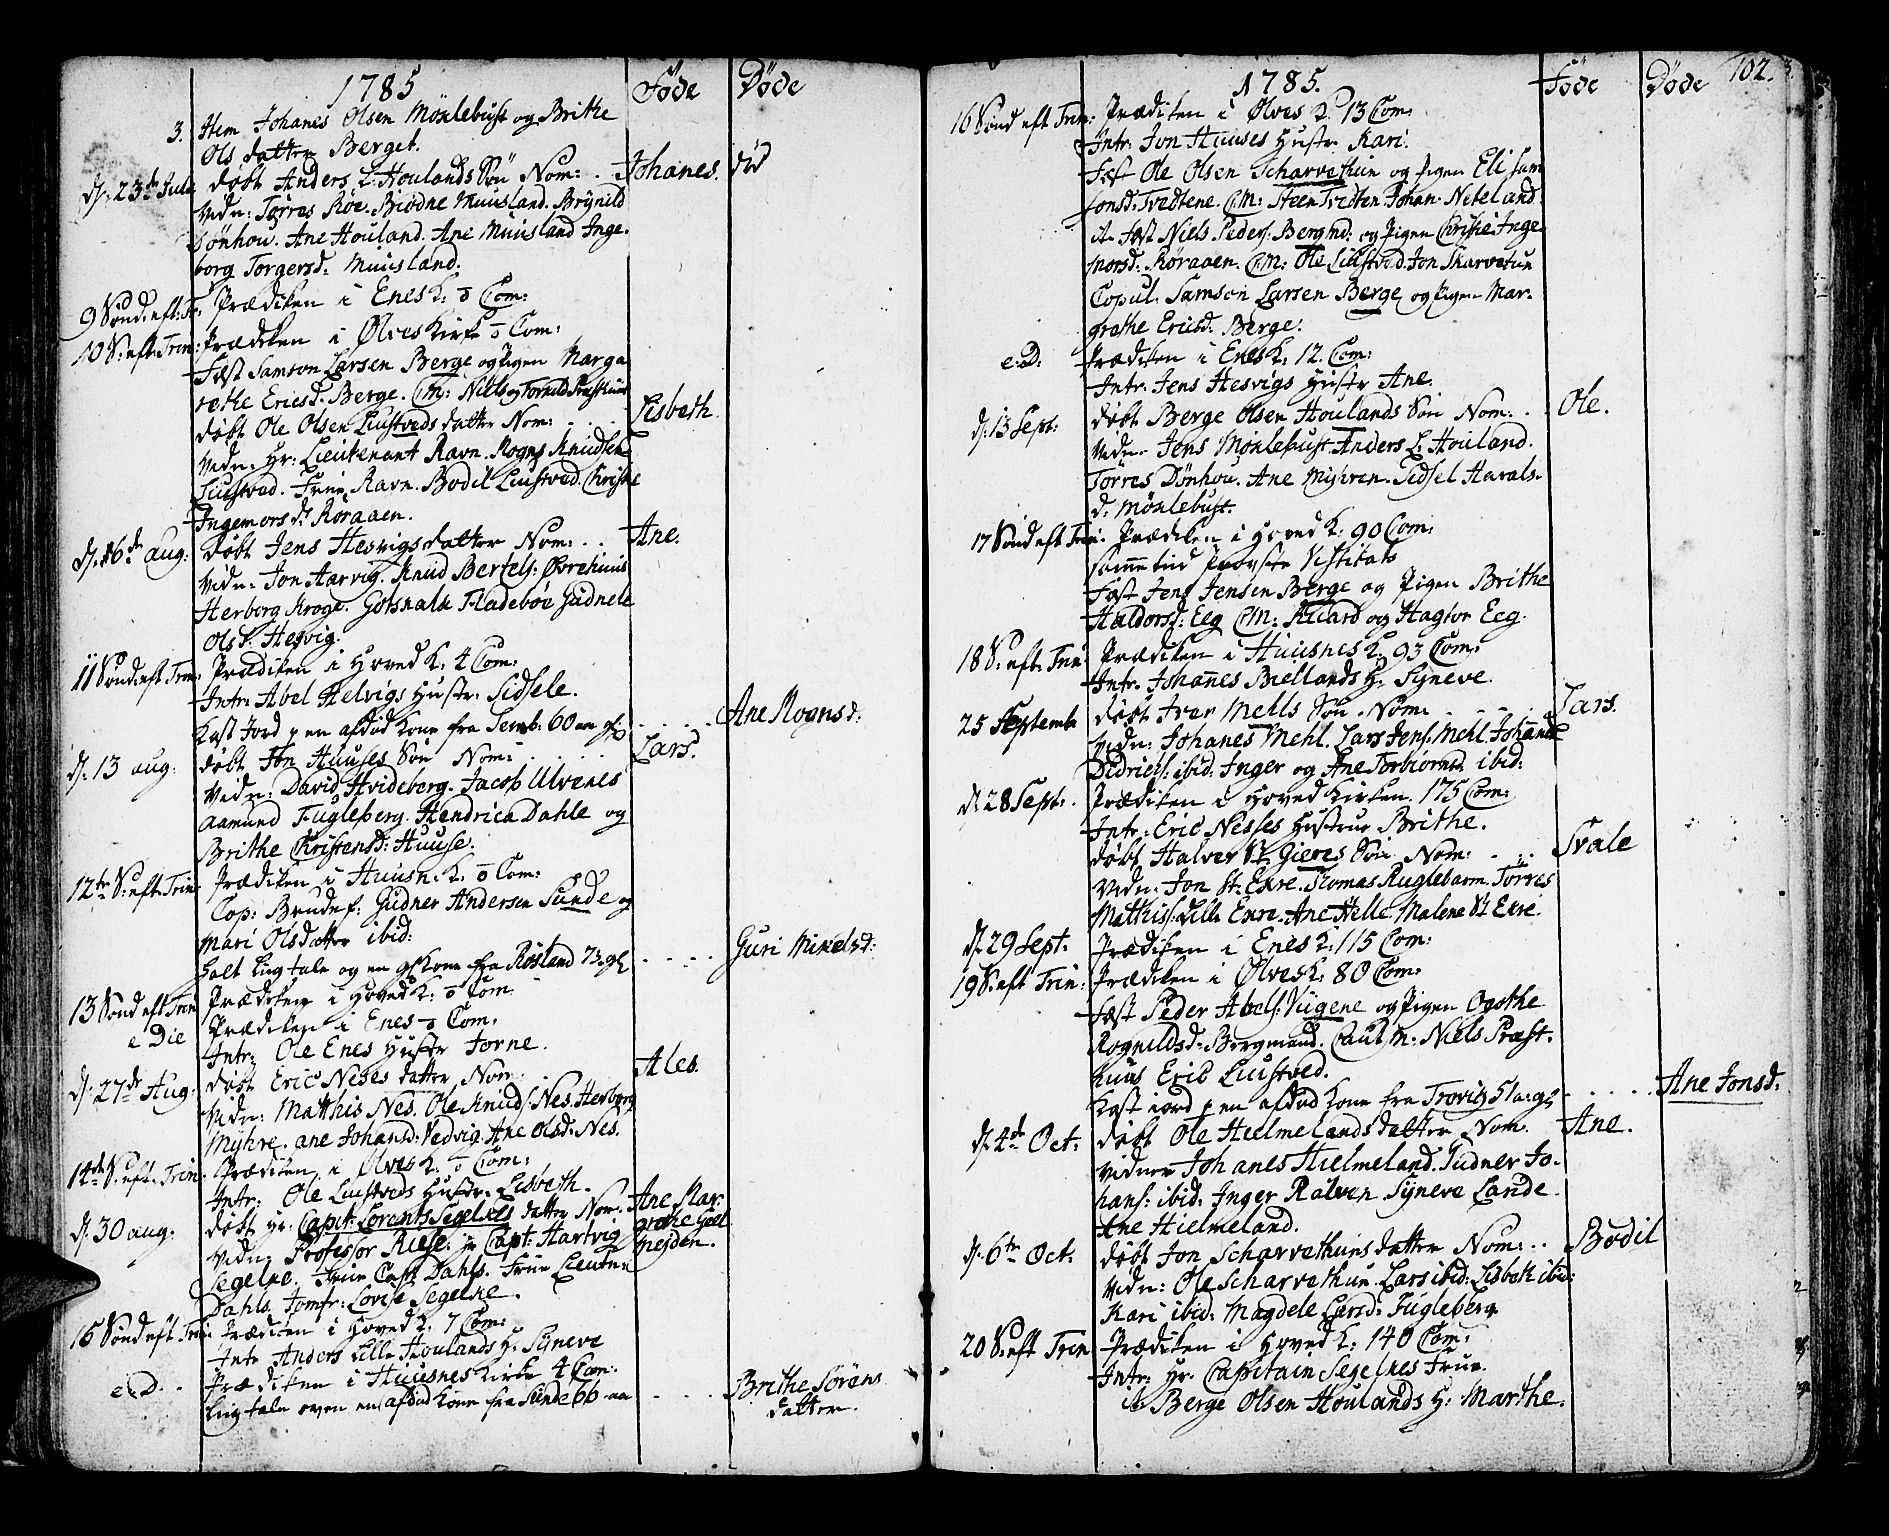 1785 Föde Döde
3. Item Johanes Olsen Möxlebust og Brithe
Ols datter Berget.
d. 23de Julii döbt Anders L: Houlands Sön Nom: . . Johanes. död
Vidn: Törres Roe. Biödne Muusland. Brÿnild
Dönhou. Ane Houland. Ane Muusland Inge-
borg Torgersd. Muusland.
9 Sönd: eft: Tr. Prædiken i Enes K: 0 Com:
10 S: eft: Trin: Prædiken i Ölves Kirke 0 Com:
Fæst Samson Larsen Berge og Pigen Marga
rethe Ericsd. Berge. CM: Niels og Tornild Præsthuus
döbt Ole Olsen Liustveds datter Nom: . . . . Lisbeth.
Vidn: Hr: Lieutenant Ravn. Rogns Knudsen
Liustved. Frue Ravn. Bodil Liustved. Christie
Ingemorsdr Röraaen.
d. 6de aug: döbt Jens Hesvigs datter Nom: . . Ane.
Vidn: Jon Aarvig. Knud Bertels: Övrehuus
Herborg Kroge. Gotskalk Fladeböe Gudnele
Olsd. Hesvig.
11 Sönd: eft Trin: Prædiken i Hoved K: 4 Com:
Intr: Abel Helvigs Hustr: Sidsele.
Kast Jord p en afdöd Kone fra Semb: 60 aar gl: . . . . . Ane Rognsd:
d. 13 aug: döbt Jon Huuses Sön Nom: . . . . Lars.
Vidn: David Hvideberg. Jacob Ulvenes
Aamund Fugleberg. Hendrica Dahle og
Brithe Christensd: Huuse.
12te S: eft: Trin. Prædiken i Huusn: K: 0 Com:
Cop: Brudef: Gudner Andersen Sunde og
Mari Olsdatter ibid:
Holt liigtale og en gl Kone fra Rosland 73. gl . . . . Guri Mikelsd:
13 Sönd eft Trin Prædiken i Hoved K: 0 Com
e Die Prædiken i Enes 0 Com:
Intr: Ole Enes Hustr Jorne.
d. 27de Aug: döbt Eric Neses datter Nom . . . Ales.
Vidn: Matthis Nes. Ole Knuds: Nes. Herborg
Mÿhre. ane Johansd: Vedvig. Ane Olsd: Nes.
14de S: eft: Trin: Prædiken i Ölves K: 0 Com:
Intr: Ole Liustveds Hustr: Lisbeth.
d. 30 aug: döbt Hr. Capit: Lorents Segelkes datter Nom: Ane Mar-
grethe Goel
Vidn: Professor Riese. Hr Capt: Hartvig nejden.
Segelke. Frue Capt Dahls. Frue Lieutn:
Dahls. Jomfr: Lovise Segelke.
15 Sönd eft Trin Prædiken i Hoved K: 7 Com:
Intr Anders Lille Houlands H: Sÿneve
e. D. . Prædiken i Huusnes Kirke 4 Com:
Liigtale over en afdöd Kone fra Sunde 66 aa . . . . Brithe Sörens
datter.
1785. Föde Döde 102.
16 Sönd eft Trin: Prædiken i Ölves K. 13 Com:
Intr: Jon Huuses Hustr Kari.
Fæst Ole Olsen Scharvethun og Pigen Eli Sam
sonsd: Tvedtene. CM: Steen Tvedten Johan. Neteland.
it Fæst Niels Peders: Bergmd: og Pigen Christie Inge
morsd: Röraaen. CM: Ole Liustved. Jon Skarvetun
Copul: Samson Larsen Berge og Pigen Mar-
grethe Ericsd. Berge.
e. D. Prædiken i Enes K: 12. Com:
Intr. Jens Hesvigs Hustr Ane.
d. 13 Sept: döbt Berge Olsen Houlands Sön Nom: . . Ole.
Vidn: Jens Möxlebust. Anders L. Houland.
Törres Dönhou. Ane Mÿhren. Sidsel Harals-
d. Möxlebust.
17 Sönd eft Trin. Prædiken i Hoved K: 90 Com:
samme tiid Provste Vistitats
Fæst Jens Jensen Berge og Pigen Brithe
Haldorsd: Eeg CM: Ricard og Hagtor Eeg.
18 S: eft: Trin Prædiken i Huusnes K. 93 Com:
Intr. Johannes Biellands H: Sÿneve.
25 Septemb döbt Iver Mehls Sön. Nom: . . . . Lars.
Vidn: Johanes Mehl. Lars Jens: Mehl. Johanes
Didrichs: ibid: Inger og Ane Torbiörnsd ibid:
d. 28 Sept: Prædiken i Hoved Kirken. 175 Com:
Intr: Eric Nesses Hustrue Brithe.
döbt Halver St. Gieres Sön Nom: . . . Svale
Vidn: Jon St. Exre. Thomas Ruglebarm. Törres
Matthis: Lille Exre. Ane Helle. Malene St Exre.
d. 29 Sept: Prædiken i Enes K: 115 Com:
19 S: eft Trin: Prædiken i Ölves K: 80 Com:
Fæst Peder Abels: Viigene og Pigen Ogothe
Rognildsd: Bergmand. Caut M: Niels Præst-
huus Eric Liustved.
Kast iord p en afdöd Kone fra Trovig 51 a: gl . . . . . Ane Jonsd.
d. 4de Oct: döbt Ole Hielmelands datter Nom. Ane.
Vidner Johanes Hielmeland. Gudner Jo-
hans: ibid: Inger Rafven Sÿneve Lande.
Ane Hielmeland.
d. 6te Oct: döbt Jon Scharvethuns datter Nom: . . Bodil
Vidn: Ole Scharvethun. Lars ibid: Lisbeth ibid:
Kari ibid: Magdele Larsd: Fugleberg
20 S: eft Trin Prædiken i Hoved K: 140 Com:
Intr: Hr. Capitain Segelkes Frue.
it Berge Olsen Houlands H: Marthe.